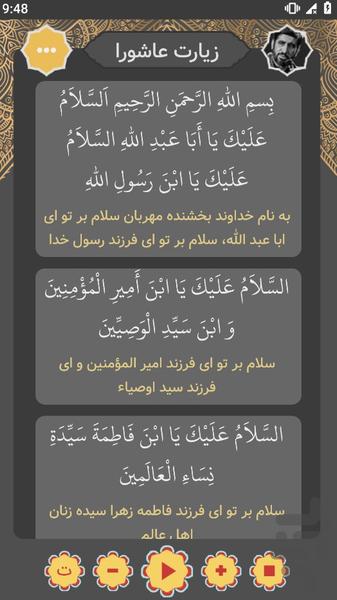 9:48
زیارت عاشورا
بِسمِ اللهِ الرَّحمَنِ الرَّحِیمِ اَلسَّلاَمُ
عَلَیْكَ یَا أَبَا عَبْدِ اللهِ السَّلاَمُ
عَلَیْكَ یَا ابْنَ رَسُولِ اللهِ
به نام خداوند بخشنده مهربان سلام بر تو ای
ابا عبد الله، سلام بر تو ای فرزند رسول خدا
السَّلاَمُ عَلَیْكَ یَا ابْنَ أَمِیرِ الْمُؤْمِنِینَ
وَ ابْنَ سَیِّدِ الْوَصِیِّینَ
سلام بر تو ای فرزند امیر المؤمنین و ای
فرزند سید اوصیاء
السَّلاَمُ عَلَیْكَ یَا ابْنَ فَاطِمَةَ سَیِّدَةِ
نِسَاءِ الْعَالَمِینَ
سلام بر تو ای فرزند فاطمه زهرا سیده زنان
اهل عالم
ت